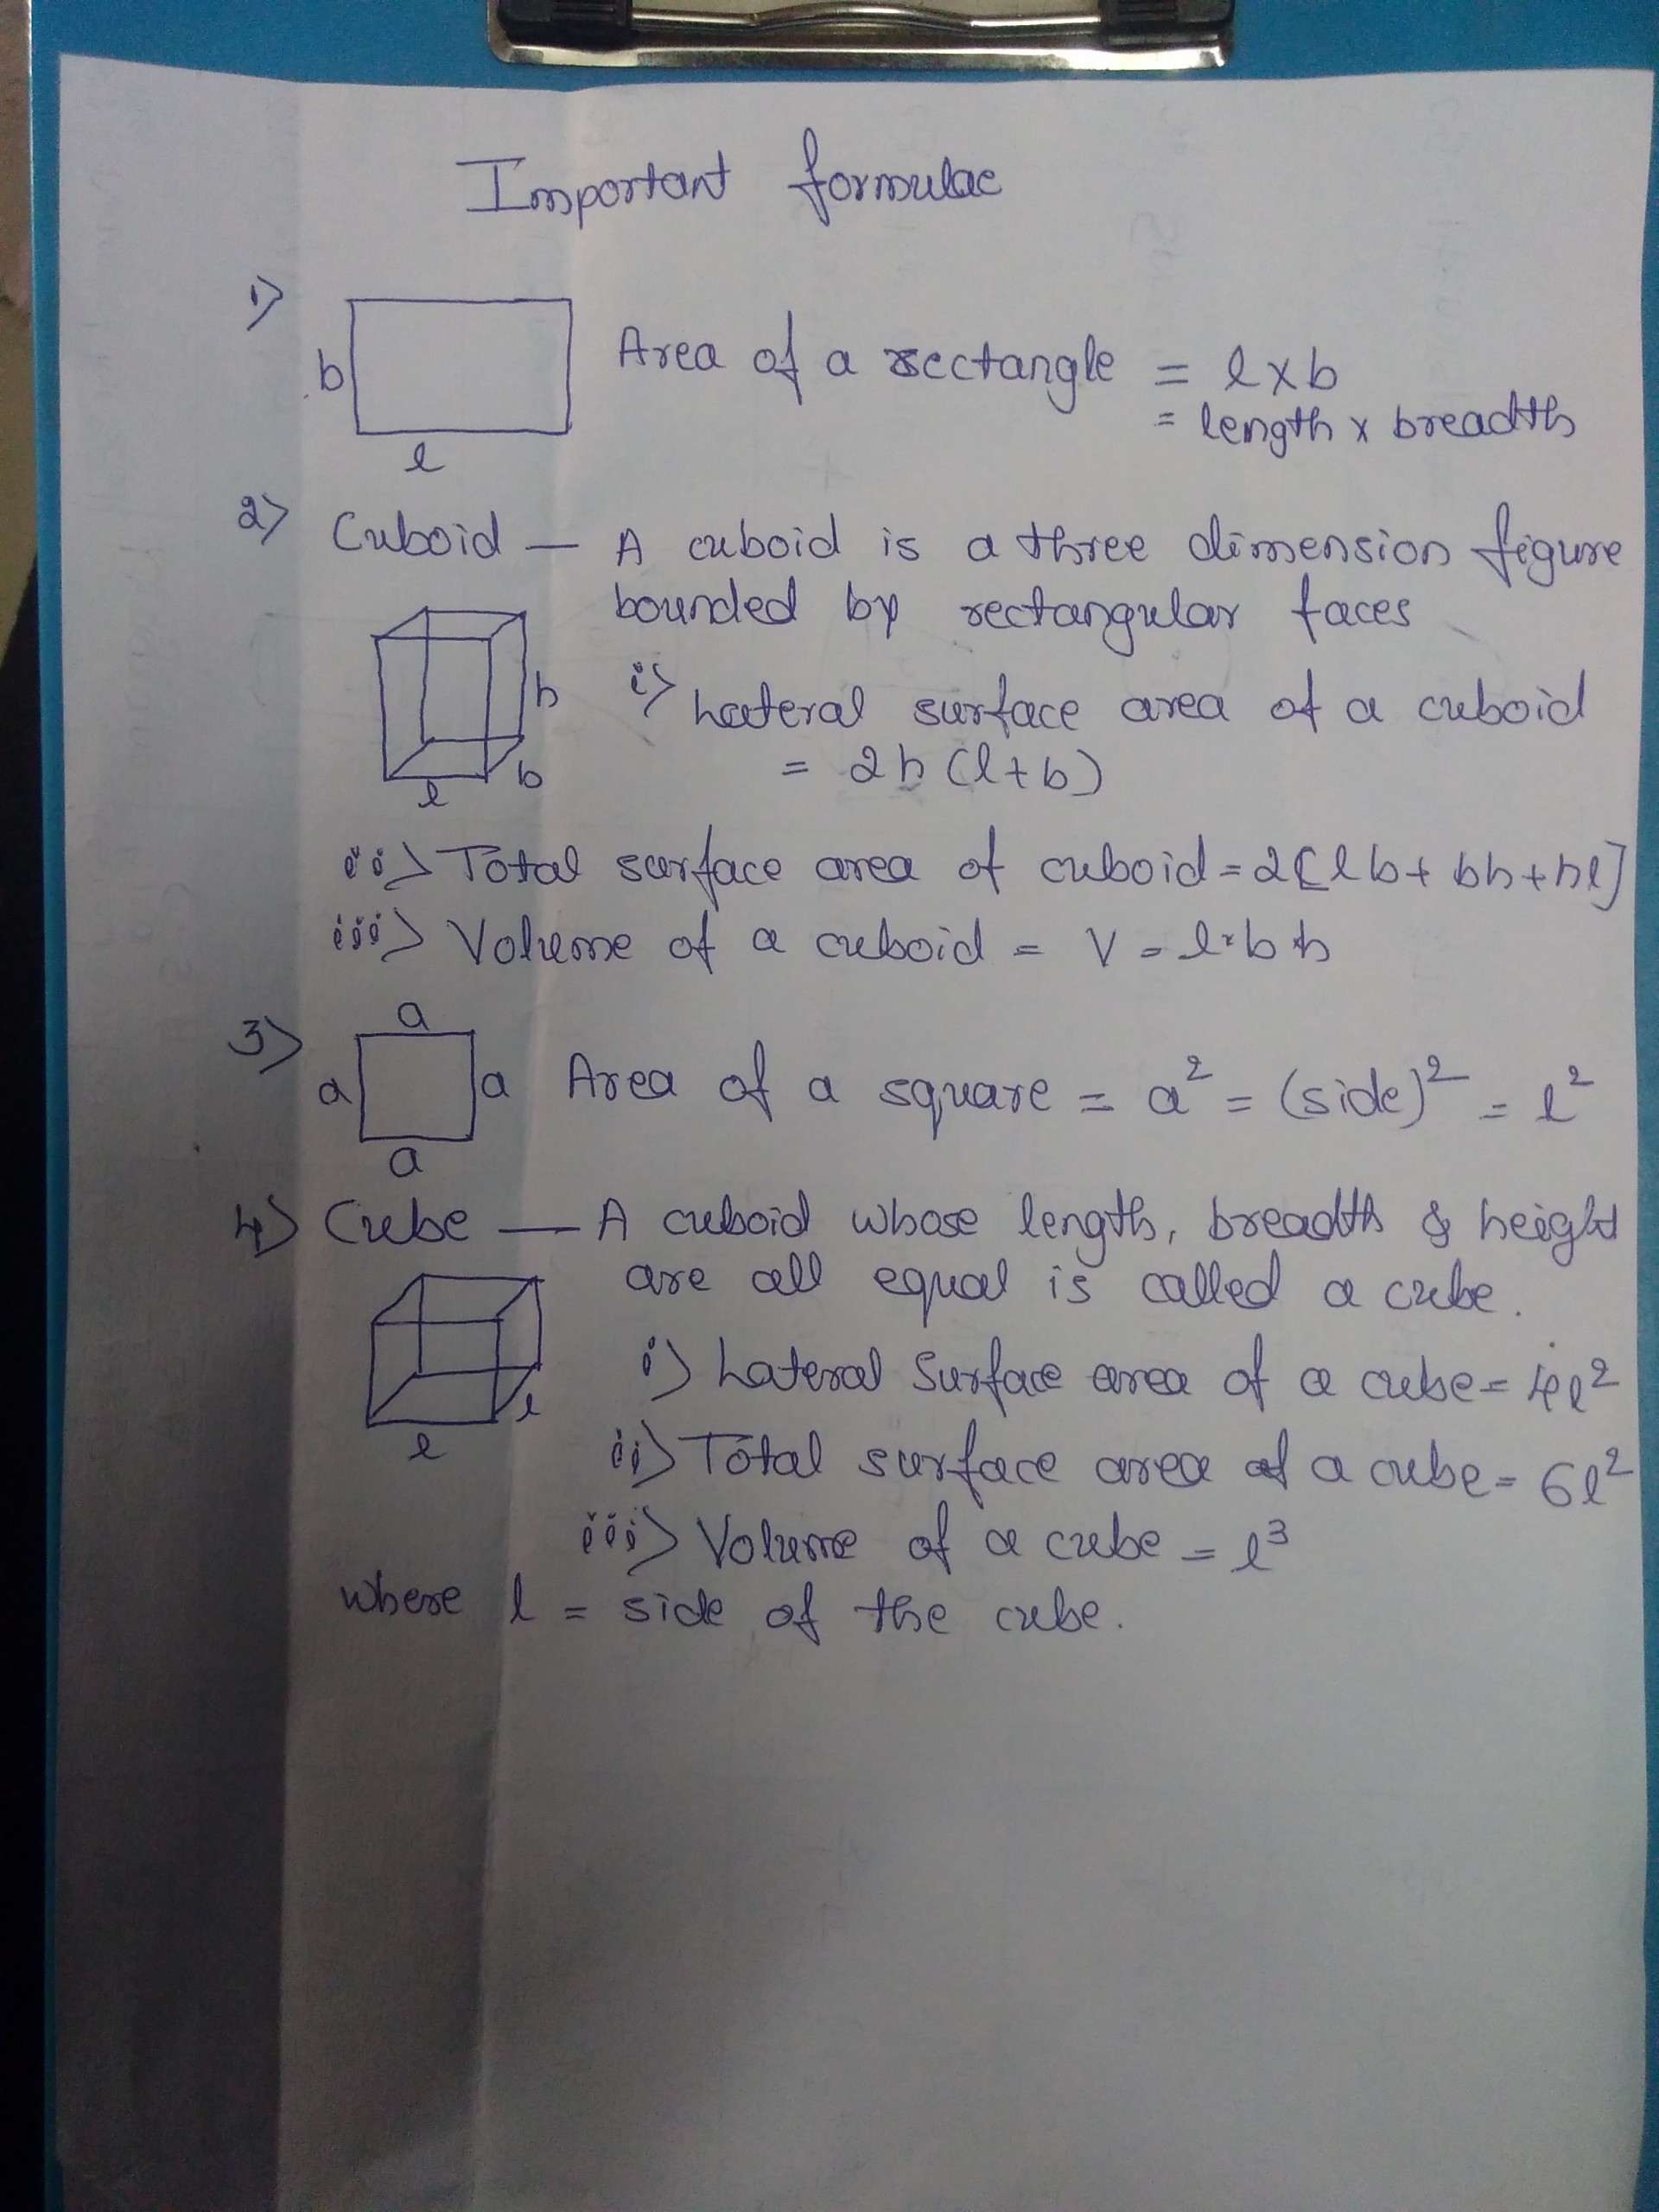 Important formulae
1) Area of a rectangle = l x b
b
= length x breadth
l
2) Cuboid — A cuboid is a three dimension figure
bounded by rectangular faces
i) Lateral surface area of a cuboid
h
= 2h (l+b)
b
l
ii) Total surface area of cuboid = 2[lb + bh + hl]
iii) Volume of a cuboid = V = l x b x h
3) a
a a Area of a square = a² = (side)² = l²
a
4) Cube — A cuboid whose length, breadth & height
are all equal is called a cube.
i) Lateral Surface area of a cube = 4l²
l
l
ii) Total surface area of a cube = 6l²
iii) Volume of a cube = l³
where l = side of the cube.